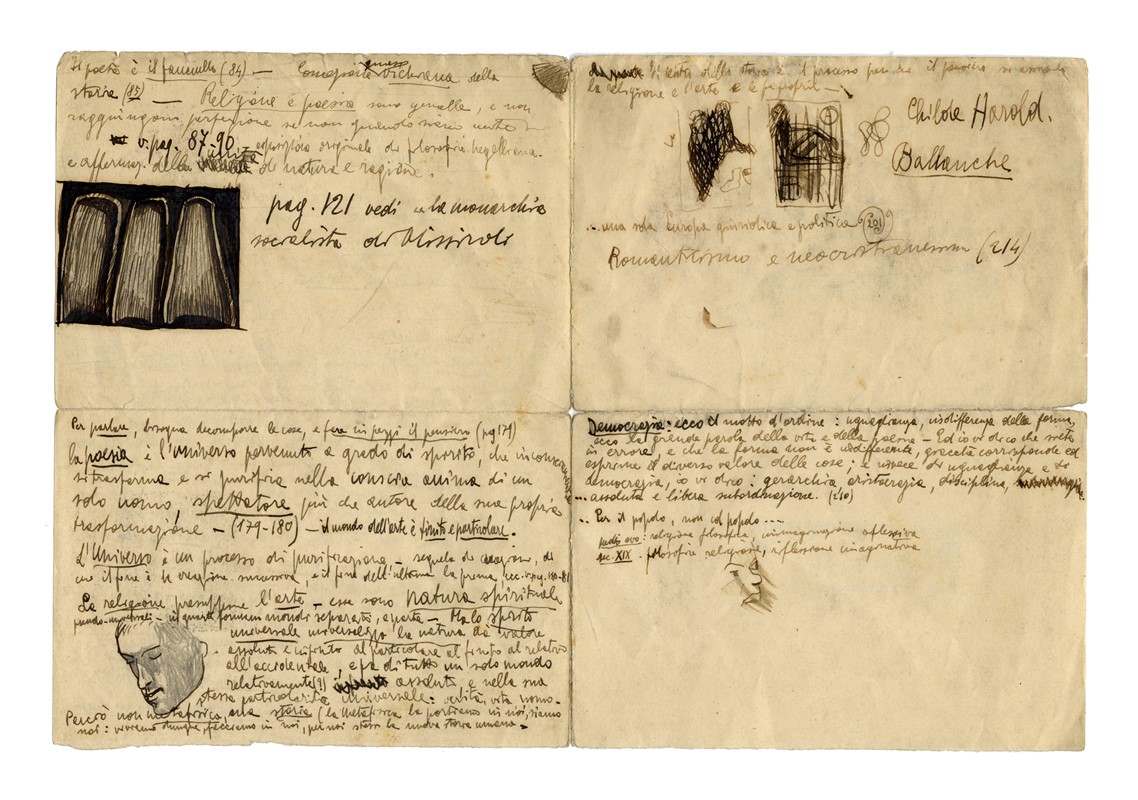 Il poeta è il fanciullo (84) — Concezione vichiana della
storia (85) — Religione è poesia sono gemelle, e non
raggiungono perfezione se non quando siano unite —
v. pag. 87-90 — esposizione originale di filosofia hegelliana.
e affermaz. della unità di natura e ragione.
pag. 121 vedi la monarchia
socialista di Missiroli
il processo per cui il pensiero
la religione e l'arte
Childe Harold.
Ballanche
...una sola Europa giuridica e politica (201)
Romanticismo e neocristianesimo (214)
Per parlare, bisogna decomporre le cose, e fare in pezzi il pensiero (pg 171)
la poesia è l'universo pervenuto a grado di spirito, che
si trasforma e si purifica nella conscia anima di un
solo uomo, spettatore più che autore della sua propria
trasformazione — (179-180) — il mondo dell'arte è finito e particolare.
L'Universo è un processo di purificazione — di
cui il fine è la creazione successiva, e il fine dell'ultima la prima, ecc. v. pag. 180-81
La religione presuppone l'arte — esse sono natura spirituale
mondi separati, a parte — Ma lo spirito
universale la natura dà valore
assoluto e infinito al particolare al finito al relativo
all'accidentale, e fa di tutto un solo mondo
relativamente (?) assoluto e nella sua
stessa particolarità universale: verità, vita uomo.
Perciò non metafisica, ma storia (la metafisica la portiamo in noi, siamo
noi: viviamo dunque, facciamo in noi, per noi stessi la nuova storia umana —
Democrazia: ecco il motto d'ordine: uguaglianza, indifferenza della forma,
ecco la grande parola della vita e della poesia — Ed io vi dico che siete
in errore, e che la forma non è indifferente, giacché corrisponde ed
esprime il diverso valore delle cose; e invece di uguaglianza e di
democrazia, io vi dico: gerarchia aristocrazia, disciplina,
... assoluta e libera subordinazione. (210)
.. Per il popolo, non col popolo ...
medio evo: religione filosofia, immaginazione riflessiva
sec. XIX. filosofia religione, riflessione immaginativa